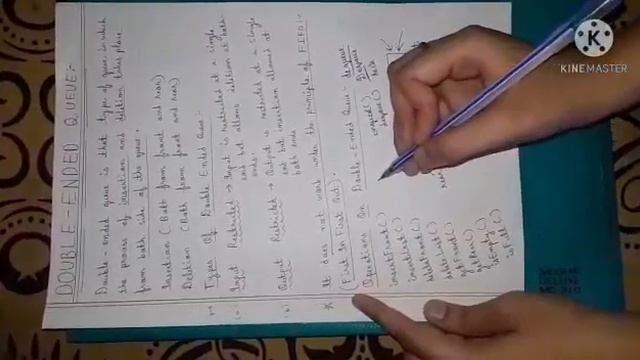 DOUBLE-ENDED QUEUE:-
Double-ended queue is that type of queue in which
the process of insertion and deletion takes place
from both side of the queue.
Insertion (Both from front and rear)
Deletion (Both from front and rear)
Types Of Double Ended Queue:-
Input Restricted → Input is restricted at a single
end but allows deletion at both
ends.
Output Restricted → Output is restricted at a single
end but insertion allowed at
both ends
* It does not work under the principle of FIFO:-
(First In First Out).
Operations On Double-Ended Queue-
insertFront()
insertLast()
deleteFront()
deleteLast()
getFront()
getRear()
isEmpty()
isFull()
enqueue()
dequeue()
KINEMASTER